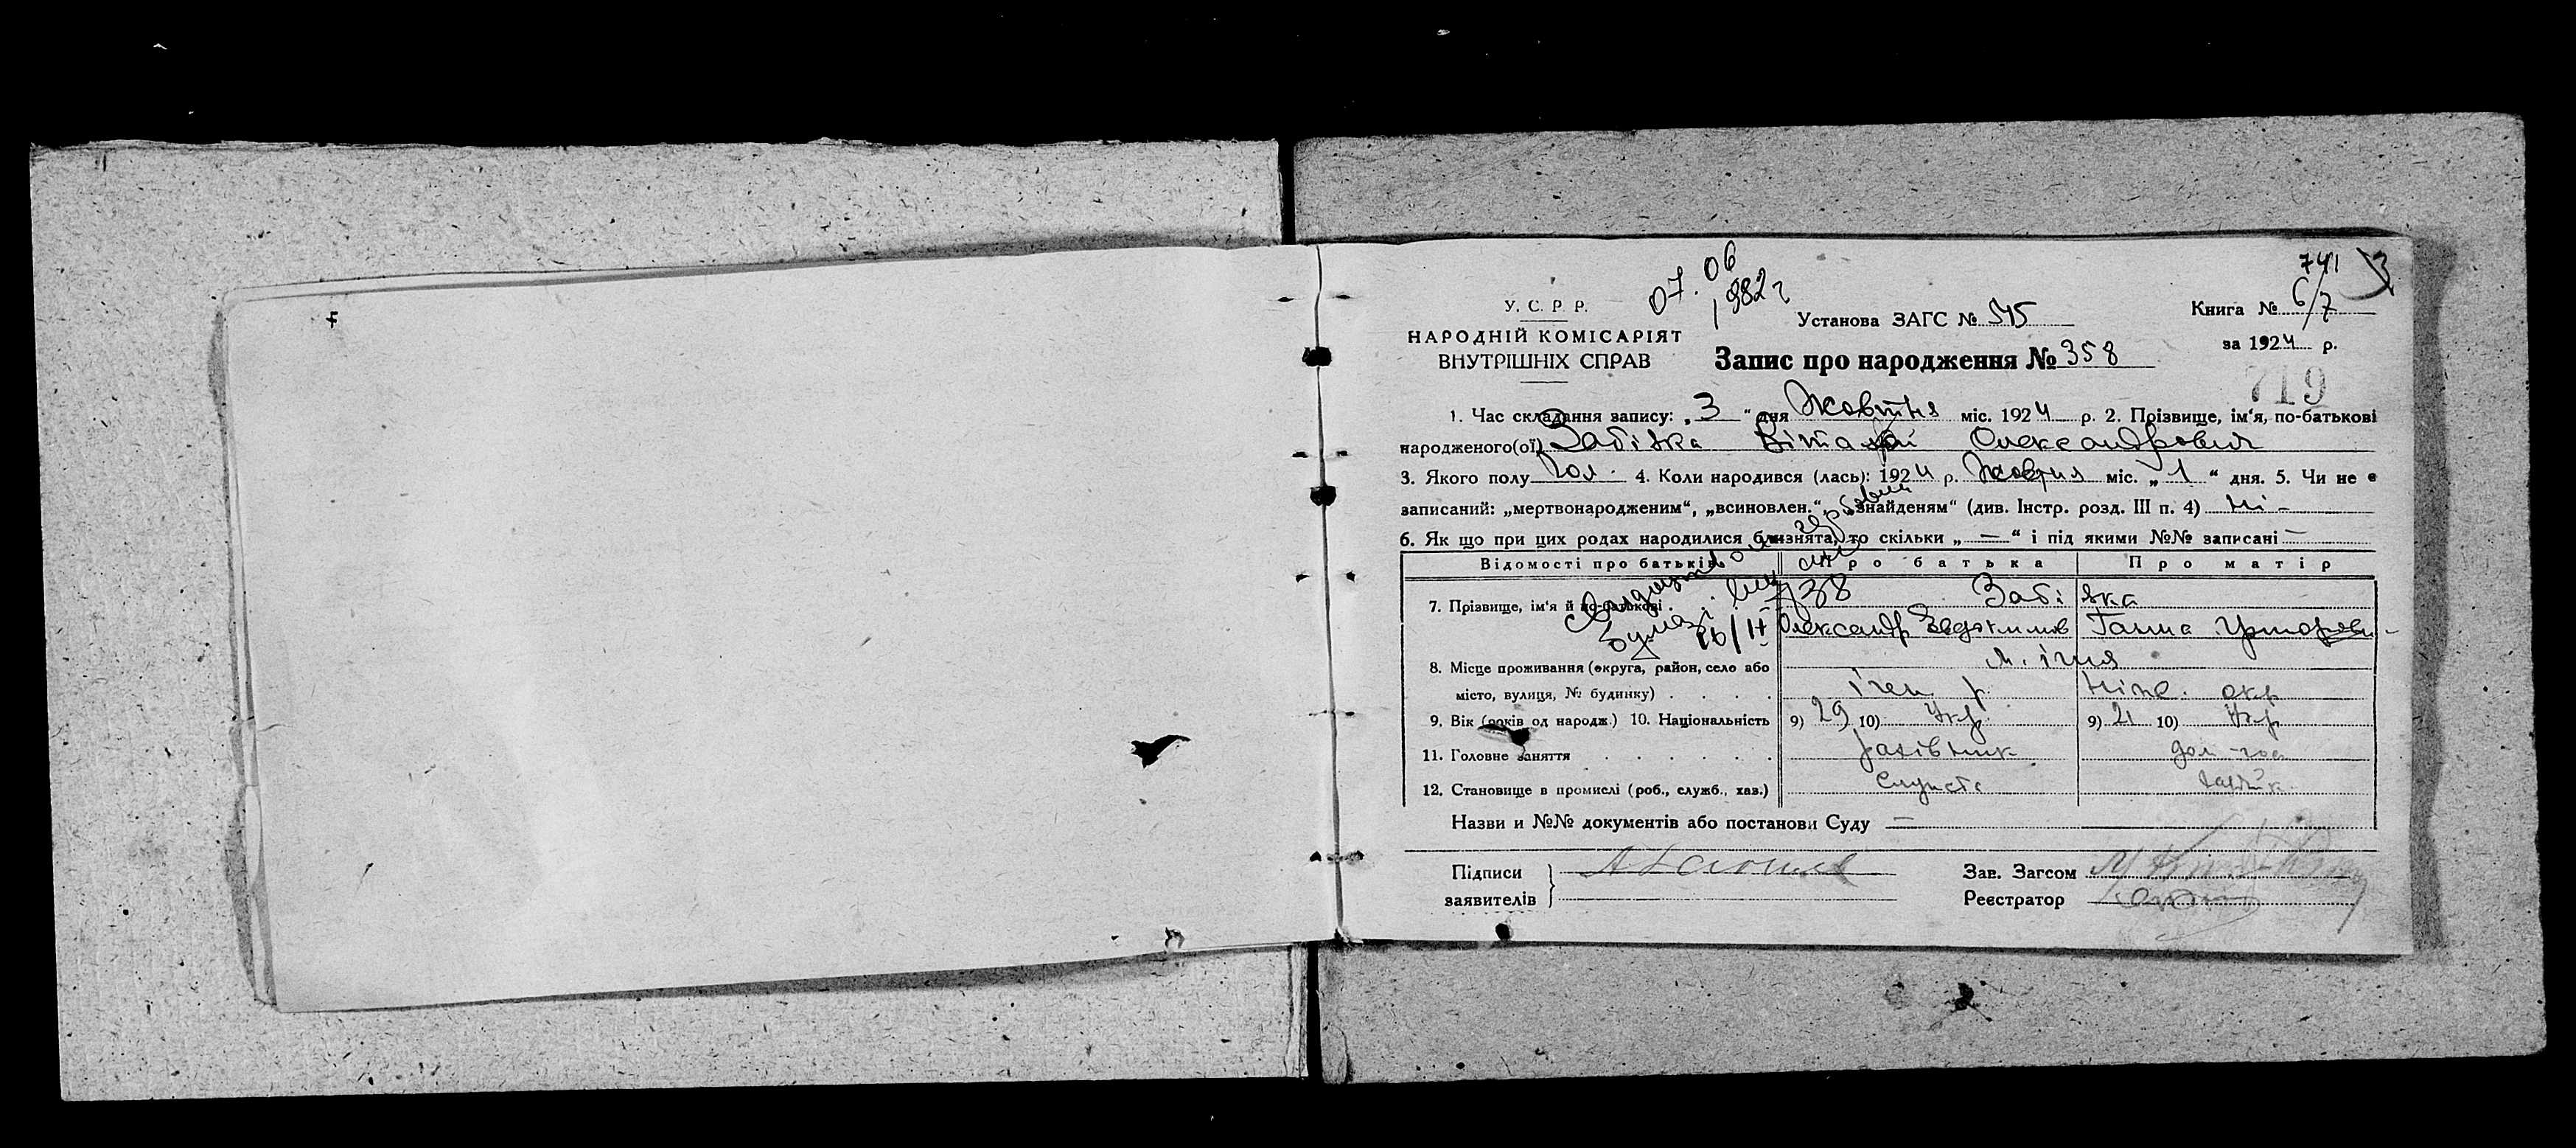 741
07.06
1982 г
У. С. Р. Р.
НАРОДНІЙ КОМІСАРІЯТ
ВНУТРІШНІХ СПРАВ
Установа ЗАГС № 545
Книга № 6/7
за 1924 р.
Запис про народження № 358
719
1. Час складання запису: „3“ дня Жовтня міс. 1924 р. 2. Прізвище, ім‘я, по-батькові
народженого(ої) Забіяка Віталій Олександрович
3. Якого полу чол. 4. Коли народився (лась): 1924 р. Жовтня міс. „1“ дня. 5. Чи не є
записаний: „мертвонародженим“, „всиновлен.“, „знайденям“ (див. Інстр. розд. III п. 4) ні -
6. Як що при цих родах народилися близнята, то скільки „—“ і під якими №№ записані —
Відомості про батьків Про батька Про матір
7. Прізвище, ім‘я й по-батькові . . . Забіяка
16/II 738
Олександр Євдокимов Ганна
8. Місце проживання (округа, район, село або м. Ічня
місто, вулиця, № будинку) . . . . Ічен р. Ніж. окр
9. Вік (років од народж.) 10. Національність 9) 29 10) Укр. 9) 21 10) Укр
11. Головне заняття . . . . . . дом-гос
12. Становище в промислі (роб., служб., хаз.)
Назви и №№ документів або постанови Суду —
Підписи
заявителів
Зав. Загсом
Реєстратор